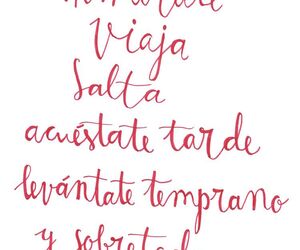 Viaja
Salta
acuéstate tarde
levántate temprano
y